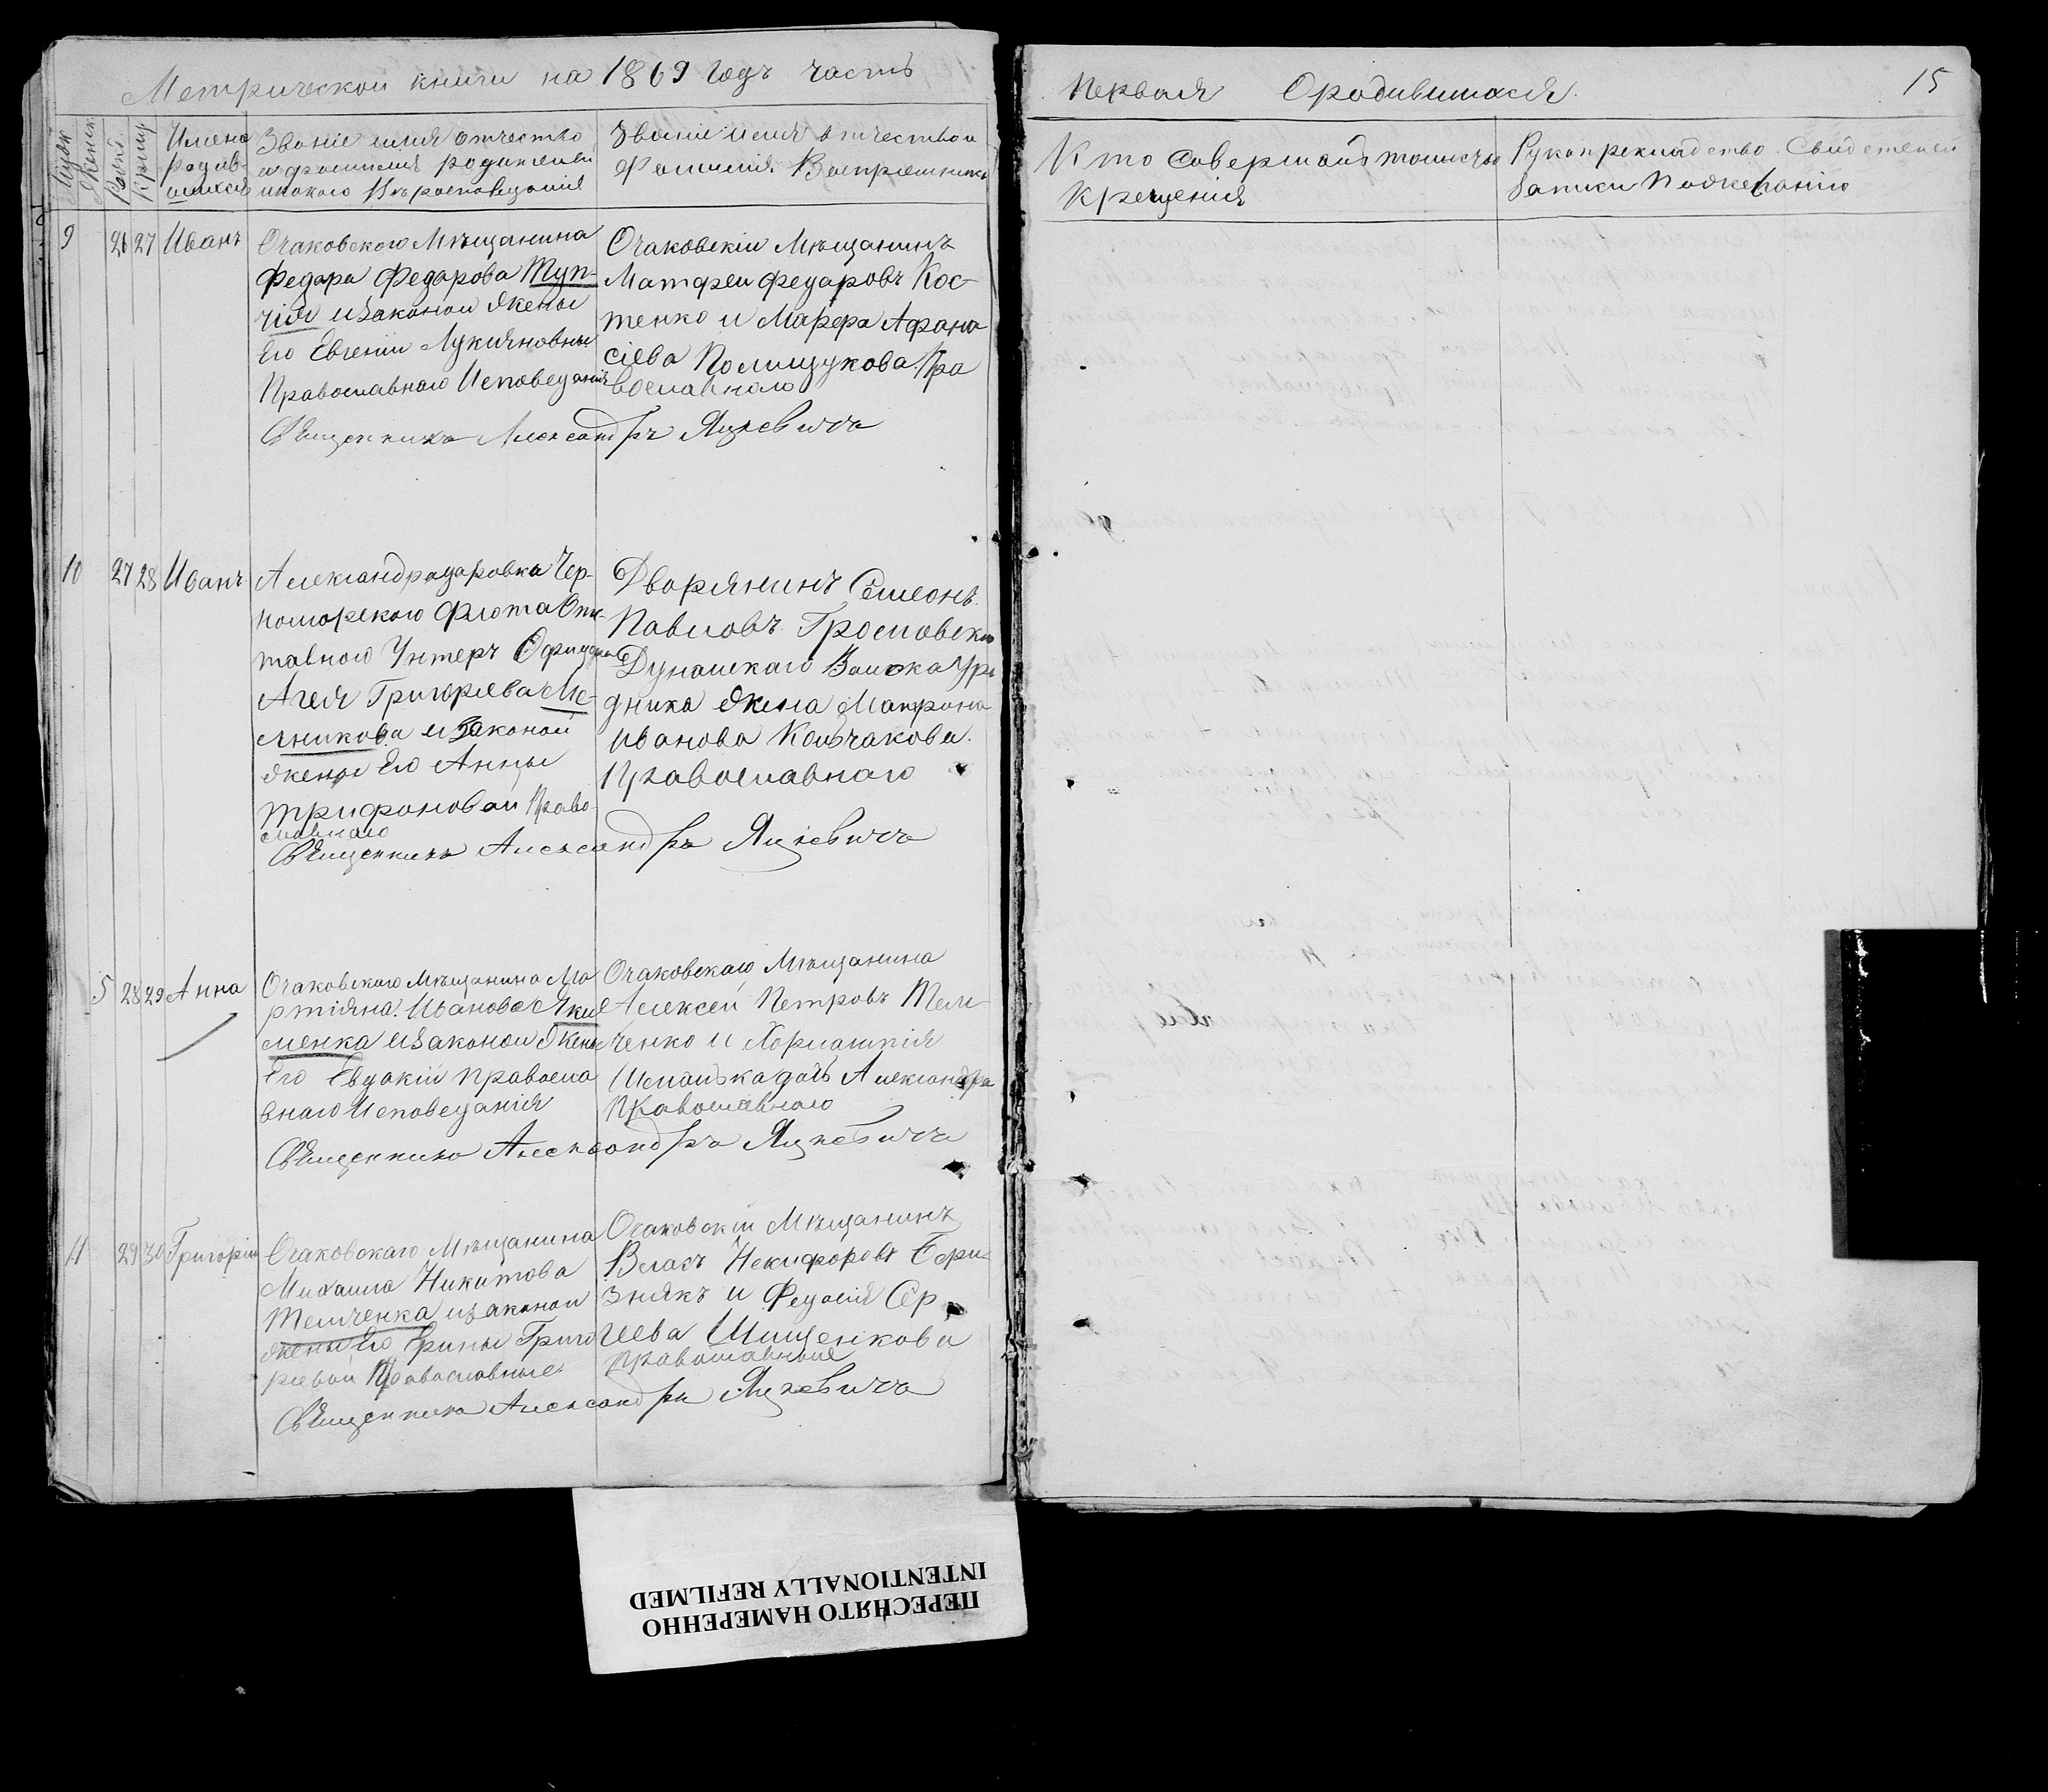 Метрической книги на 1869 годъ часть
первая О родившихся.
15
Мужск
Женск
Рожд.
Крещ
Имена
родив-
шихся
Званіе имя отчество
и фамилия родителей
и какого Вероисповеданія
Званіе имя отчество и
Фамилия Воспріемников
Кто Совершалъ таинство
Крещения
Рукоприкладство Свидетелей
записи По желанію
9 26 27 Иванъ
Очаковского Мѣщанина
Федара Федарова Туп-
чія и Законой Жены
Его Евгеніи Лукияновны
Православнаго Исповеданія
Очаковскіи Мѣщанинъ
Матфеи Федаровъ Кос-
тенко и Марфа Афана
сіева Полищукова Пра
вославнаго
Священникъ Александръ Яцкевичъ
10 27 28 Иванъ
Александрадаровка Чер-
номорского флота Отс-
тавного Унтеръ Офицера
Агея Григорыева Ме-
лникова и Законой
жены Его Анны
трифоновой Право
славнаго
Дворянинъ Симеонъ
Павловъ Громовски
Дунайскаго Воиска Уря
дника жена Матрона
Иванова Колчакова.
Православнаго
Священникъ Александръ Яцкевичъ
5 28 29 Анна
Очаковского Мѣщанина Ма
ртіяна Иванова Яки
менка и Законои Жены
Его Евдакіи Правосла
внаго Исповеданія
Очаковскаго Мѣщанина
Алексей Петровъ Тели-
ченко и
дочь Александра
Православнаго
Священникъ Александръ Яцкевичъ
11 29 30 Григоріи
Очаковскаго Мѣщанина
Михаила Никитова
Теличенка и законои
жены Его Ірины Григо
рыевой Православные
Очаковскіи Мѣщанинъ
Власъ Никифоровъ Бери-
знякъ и Федосія Сер
геева Шищенкова
Православные
Священникъ Александръ Яцкевичъ
ПЕРЕСНЯТО НАМЕРЕННО
INTENTIONALLY REFILMED